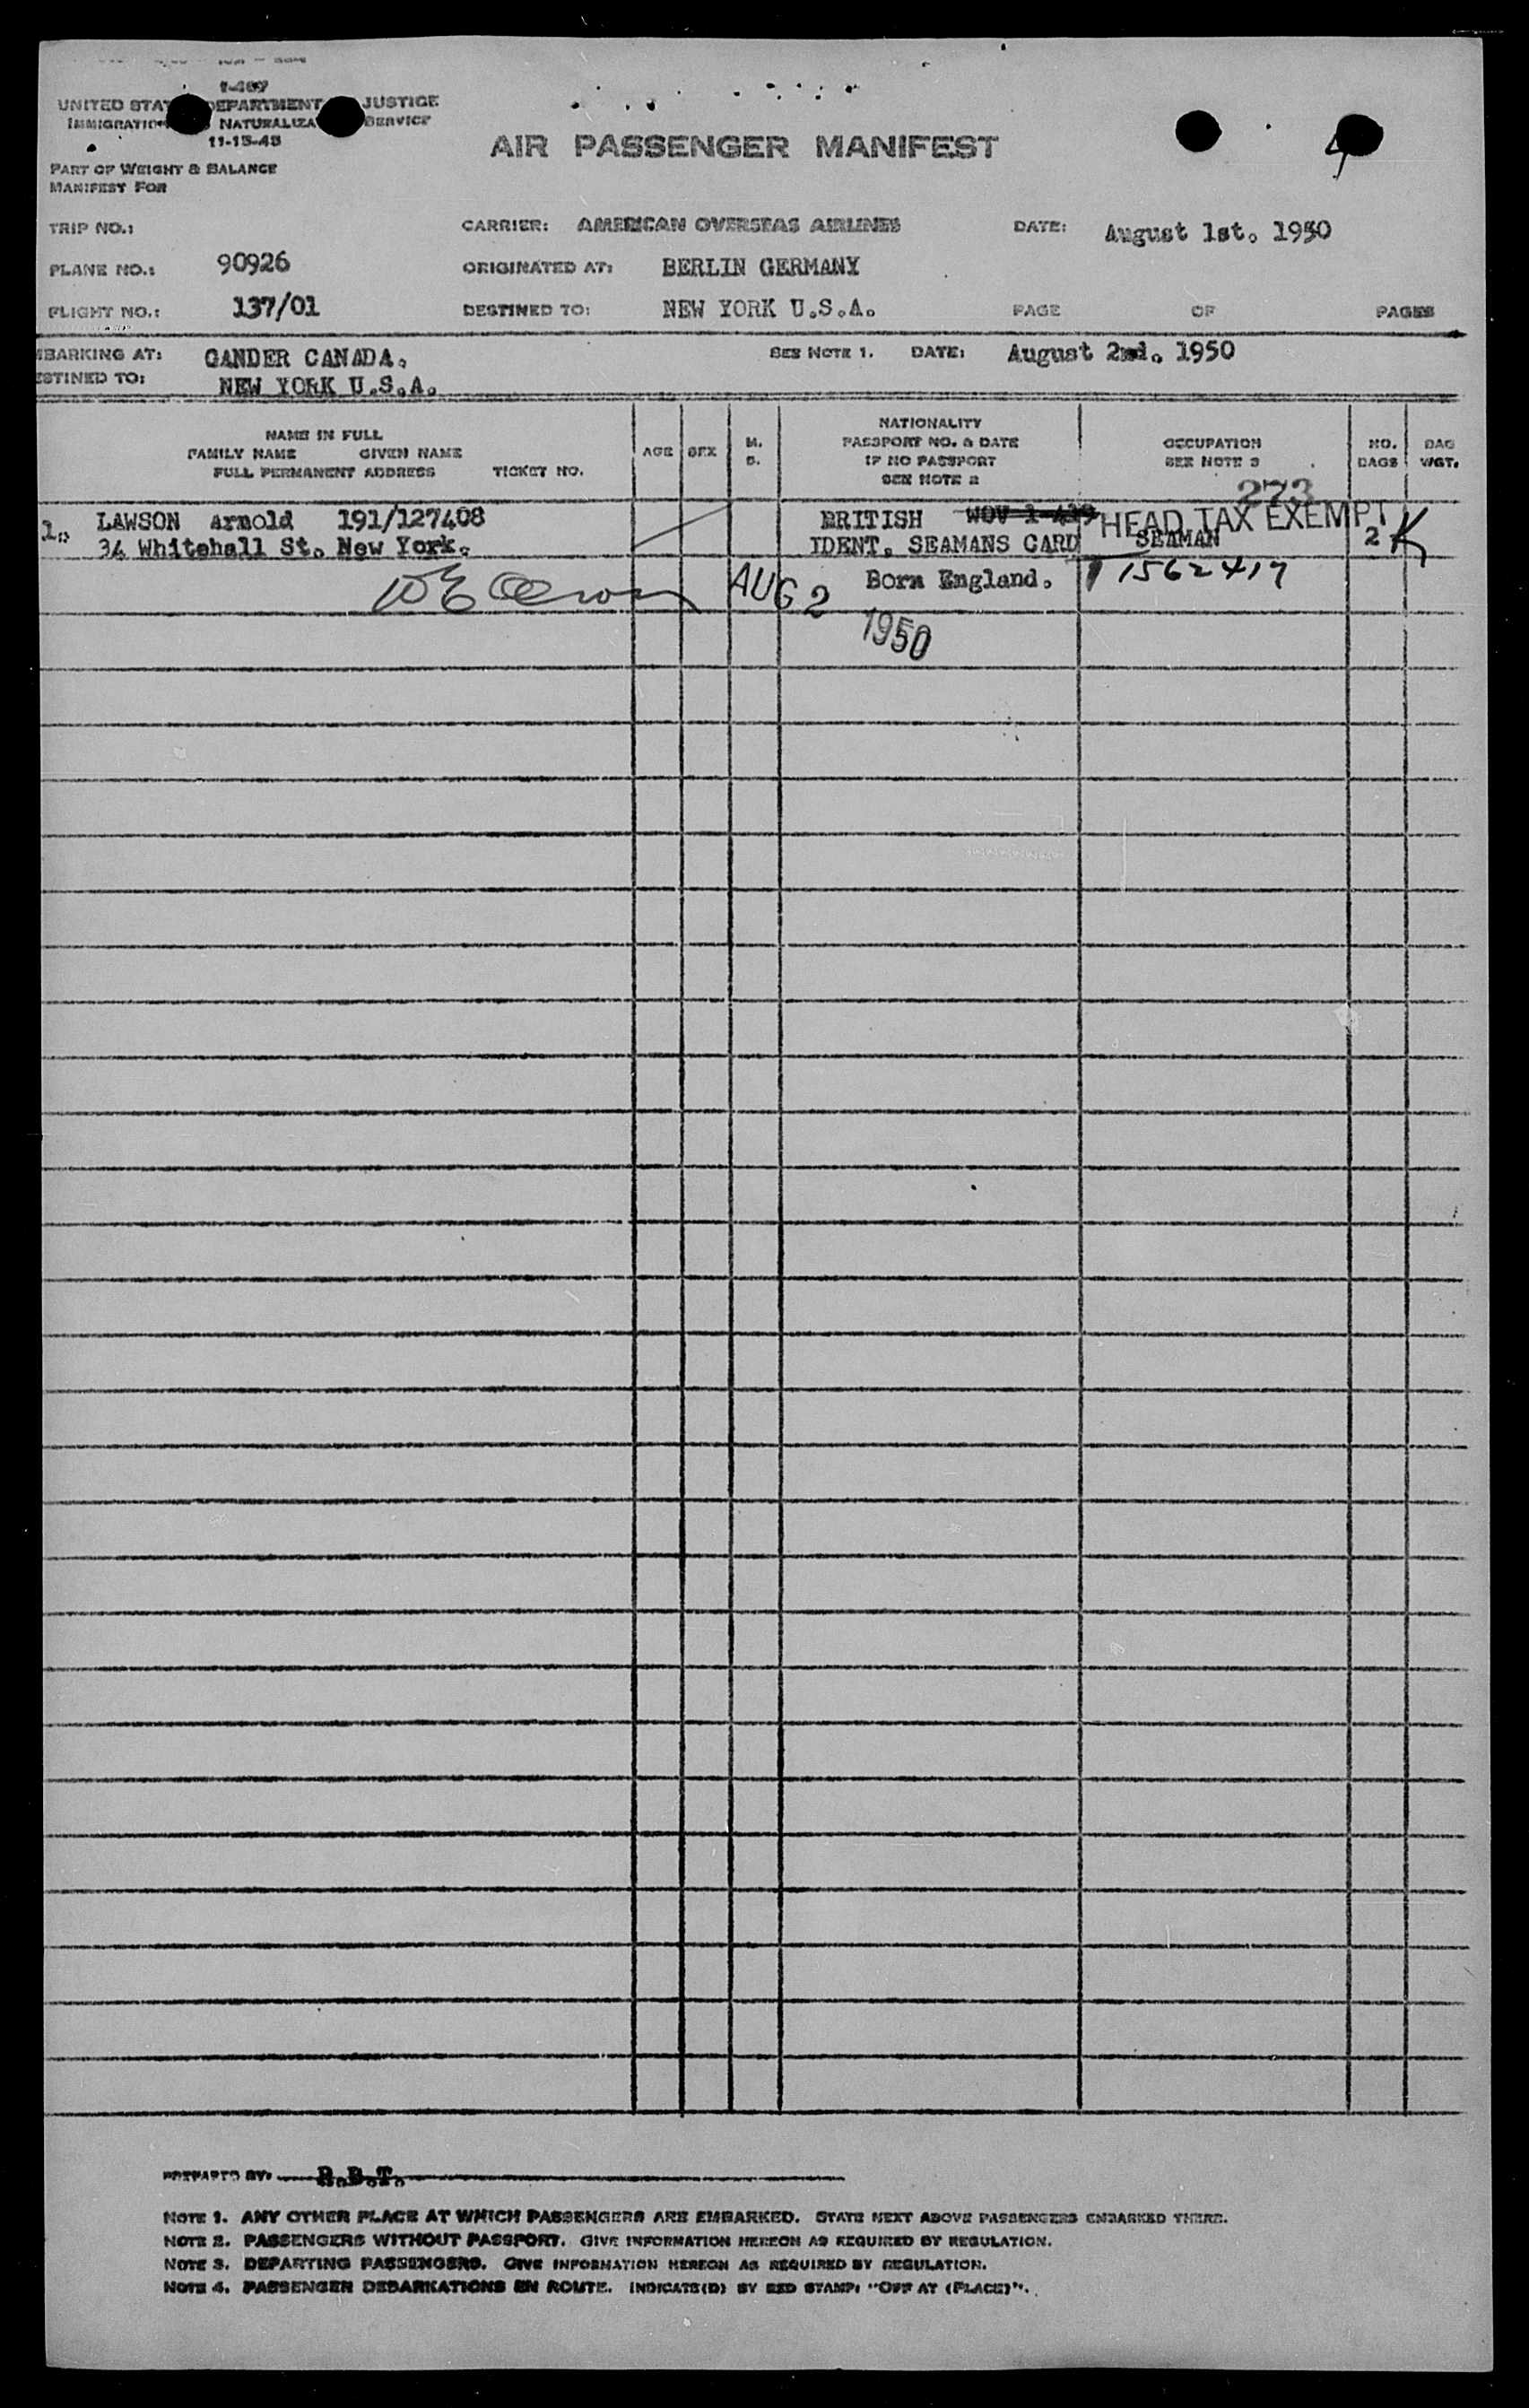 I-467
UNITED STATES DEPARTMENT JUSTICE
IMMIGRATION NATURALIZA SERVICE
11-15-45
AIR PASSENGER MANIFEST
4
PART OF WEIGHT & BALANCE
MANIFEST FOR
TRIP NO.:
CARRIER: AMERICAN OVERSEAS AIRLINES
DATE: August 1st. 1950
PLANE NO.: 90926
ORIGINATED AT: BERLIN GERMANY
FLIGHT NO.: 137/01
DESTINED TO: NEW YORK U.S.A.
PAGE OF PAGES
MBARKING AT: GANDER CANADA.
SEE NOTE 1. DATE: August 2nd. 1950
ESTINED TO: NEW YORK U.S.A.
NAME IN FULL
FAMILY NAME GIVEN NAME
FULL PERMANENT ADDRESS TICKET NO.
AGE
SEX
M.
S.
NATIONALITY
PASSPORT NO. & DATE
IF NO PASSPORT
SEE NOTE 2
OCCUPATION
SEE NOTE 3
NO.
BAGS
BAG
WGT.
273
1. LAWSON Arnold 191/127408 BRITISH HEAD TAX EXEMPT
34 Whitehall St. New York. IDENT. SEAMANS CARD SEAMAN 2 K
AUG 2 Born England. 1562417
1950
PREPARED BY:
NOTE 1. ANY OTHER PLACE AT WHICH PASSENGERS ARE EMBARKED. STATE NEXT ABOVE PASSENGERS EMBARKED THERE.
NOTE 2. PASSENGERS WITHOUT PASSPORT. GIVE INFORMATION HEREON AS REQUIRED BY REGULATION.
NOTE 3. DEPARTING PASSENGERS. GIVE INFORMATION HEREON AS REQUIRED BY REGULATION.
NOTE 4. PASSENGER DEBARKATIONS EN ROUTE. INDICATE(D) BY RED STAMP: "OFF AT (PLACE)".